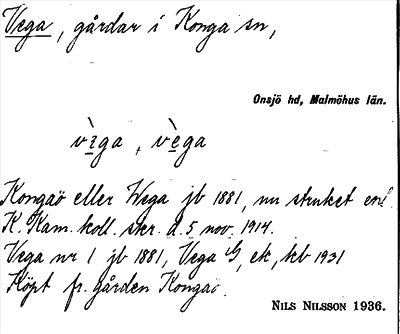 Vega, gårdar i Konga sn,
Onsjö hd, Malmöhus län.
vèga, vèga
Kongaö eller Wega jb 1881, nu struket enl.
K. Kam. koll. skr. d. 5 nov. 1914.
Vega nr 1 jb 1881, Vega G, ek, kb 1931
Köpt fr. gården Kongaö.
NILS NILSSON 1936.